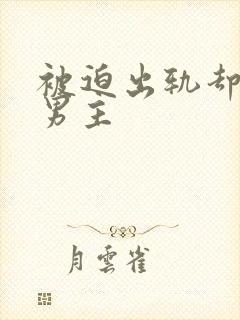 被迫出轨却
男主
月雲雀